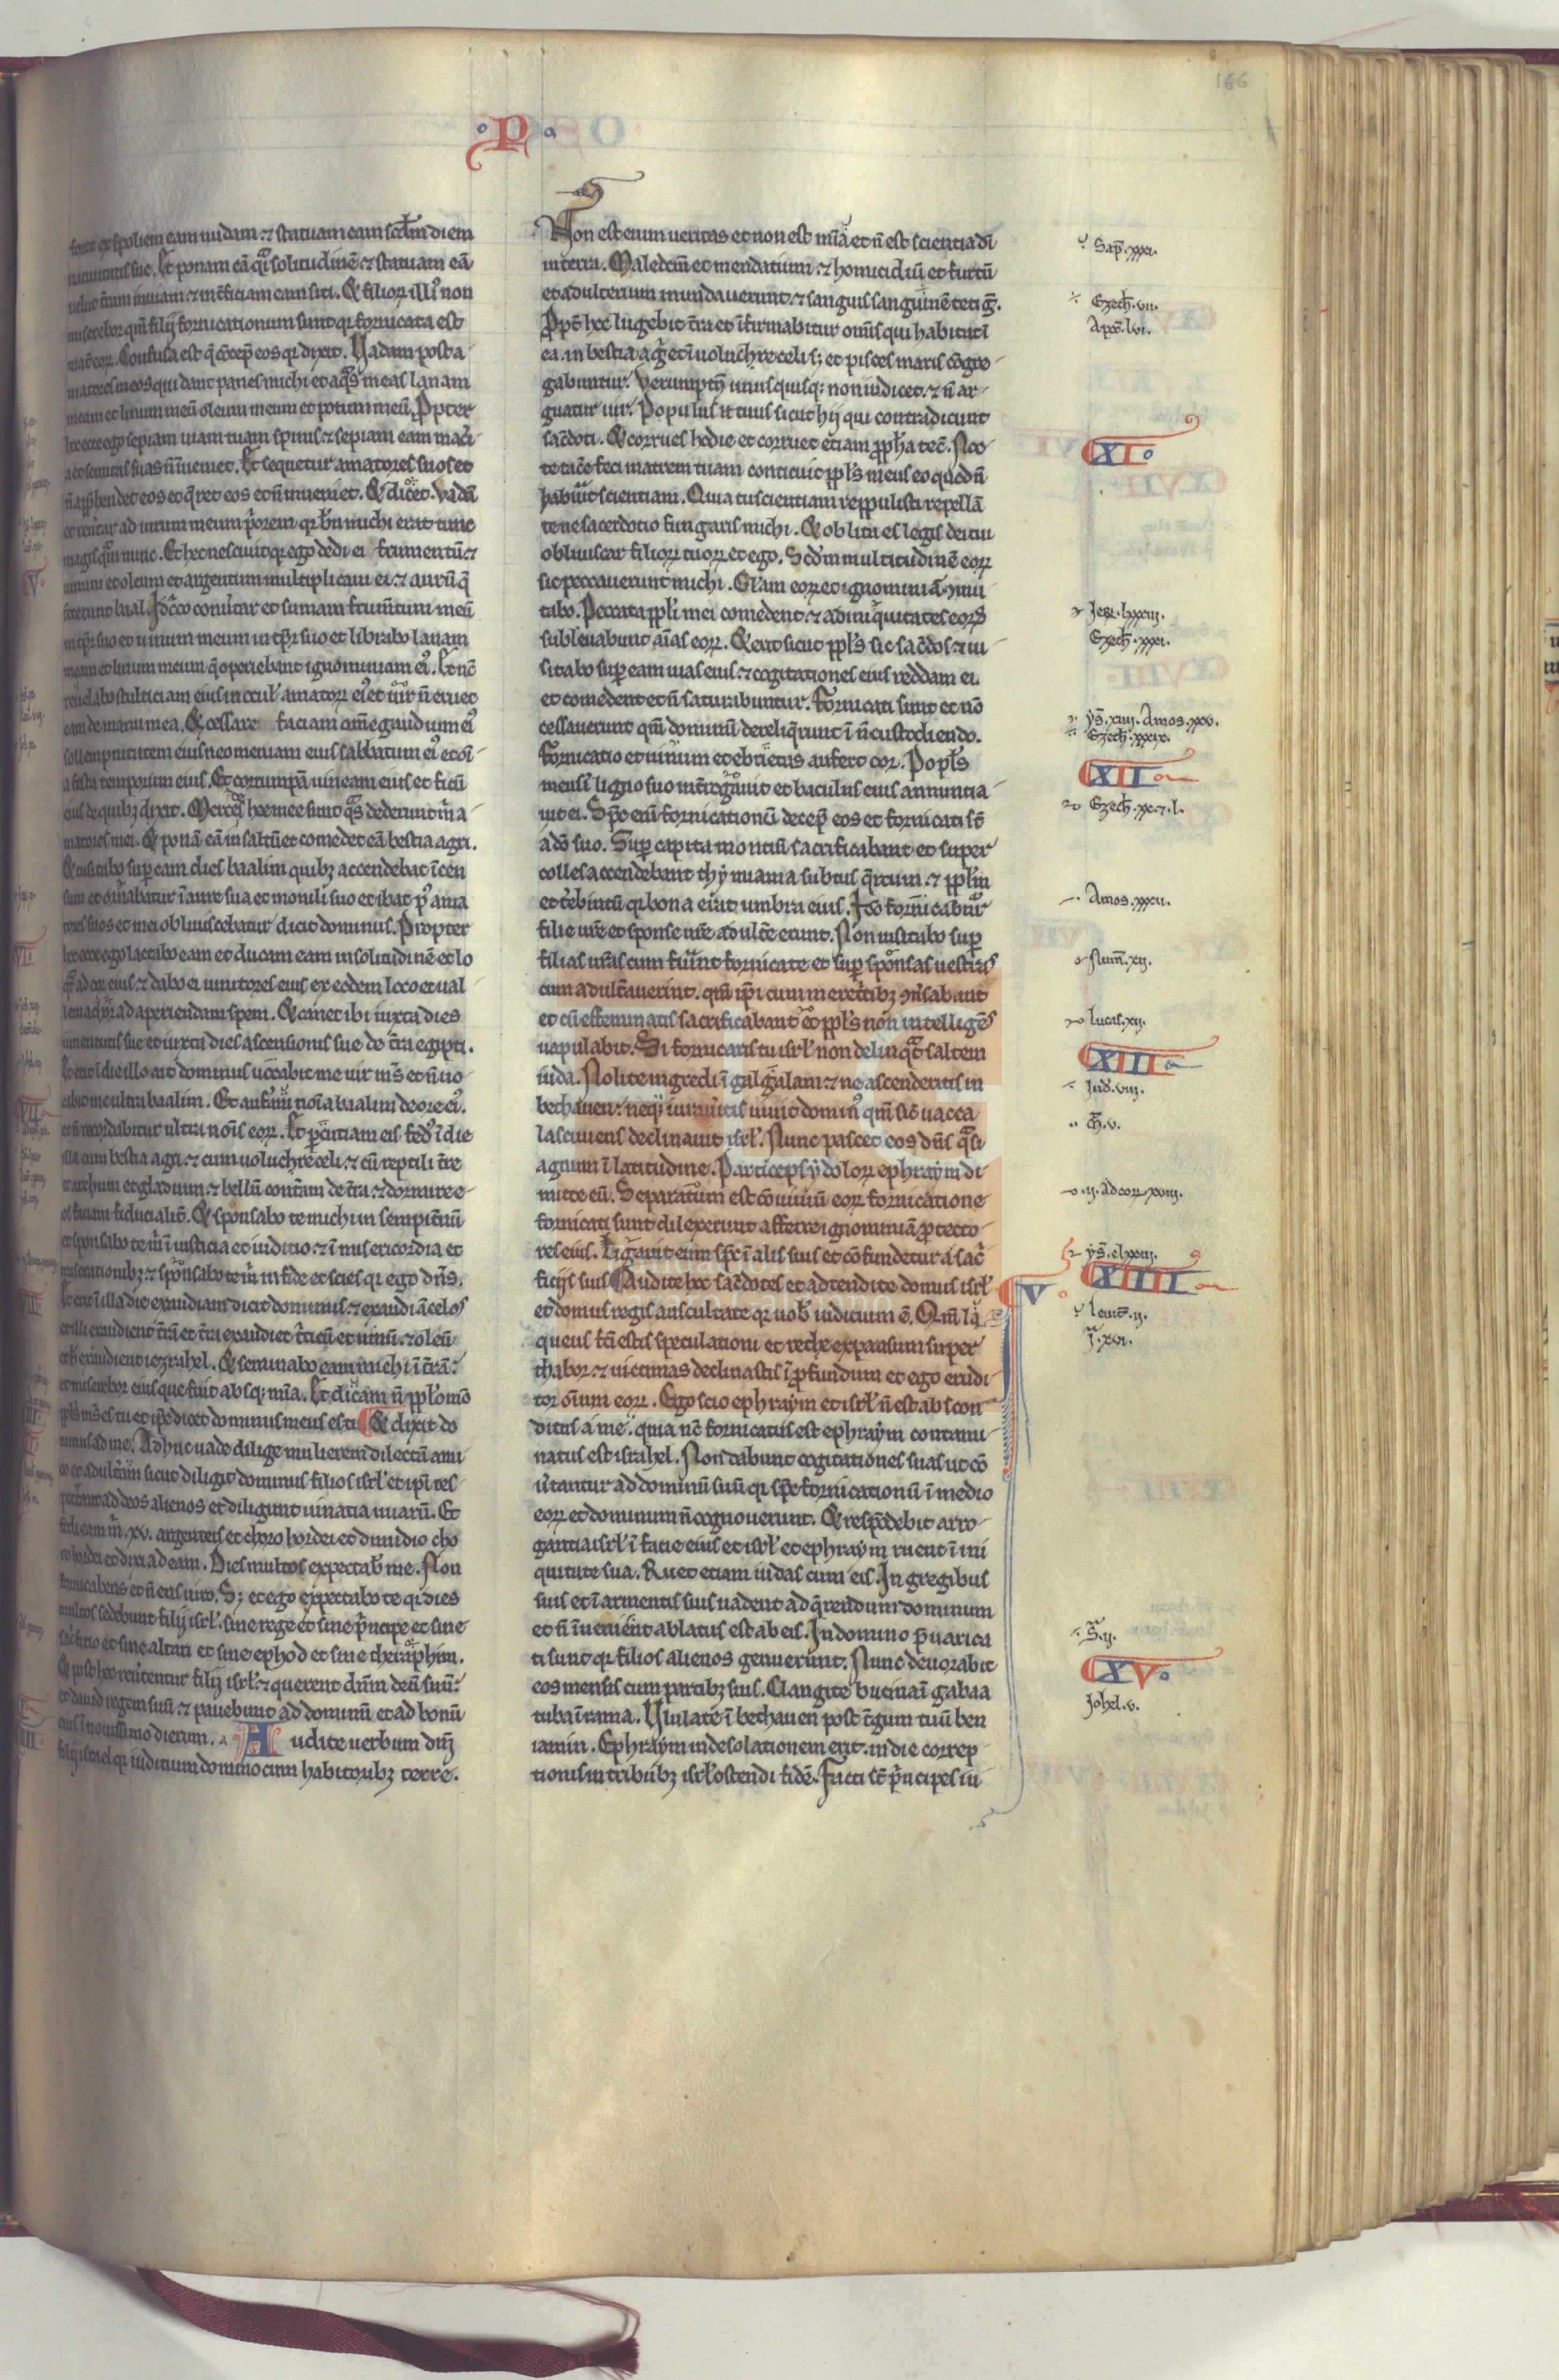 166
P
forte exspoliem eam nudam ⁊ statuam eam scđm diem
natiuitatis sue. Et ponam eā q̈i solitudinē ⁊ statuam eā
uelut t̄ram inuiam ⁊ int̄ficiam eam siti. Et filioꝝ illiꝰ non
miserebor qm̄ filij fornicationum sunt qr fornicata est
mat̄ eoꝝ. Confusa est q̄ c̄cep̄ eos qr dixit. Vadam post a
matores meos qui dant panes michi et aq̈s meas lanam
meam et linum meū oleum meum et potum meū. Ꝓpter
hoc ecce ego sepiam uiam tuam spinis ⁊ sepiam eam mac̄i
a et semitas suas n̄ inueniet. Et sequetur amatores suos et
n̄ app̄hendet eos et q̄ret eos et n̄ inueniet. Et dicet. Vadā
et reu̅tar ad uirum meum p̄orem qr bn̄ michi erat tunc
magis q̈m nunc. Et hec nesciuit qr ego dedi ei frumentū ⁊
uinum et oleum et argentum multiplicaui ei ⁊ aurū q̄
fecerunt baal. Idc̄co conu̅tar et sumam frum̄tum meū
in tp̄r suo et uinum meum in tp̄r suo et librabo lanam
meam et linum meum q̄ operiebant ignominiam eiꝰ. Et nc̄
reuelabo stulticiam eius in ocul̓ amatoꝝ eiꝰ et uir n̄ eruet
eam de manu mea. Et cessare faciam om̄e gaudium eiꝰ
sollempnitatem eius neomeniam eius sabbatum eiꝰ et oī
a festa temporum eius. Et corrumpā uineam eius et ficū
eius de quibꝫ dixit. Mercedes hee mee sunt q̈s dederunt m̄ a
matores mei. Et ponā eā in saltū et comedet eā bestia agri.
Et uisitabo suꝑ eam dies baalim quibꝫ accendebat īcen
sum et ornabatur ī aure sua et monili suo et ibat pꝰ ama
tores suos et mei obliuiscebatur dicit dominus. Propter
hoc ecce ego lactabo eam et ducam eam in solitudinē et lo
q̈r ad cor eius ⁊ dabo ei uinitores eius ex eodem loco et ual
lem achor ad aperiendam spem. Et canet ibi iuxta dies
iuuentutis sue et iuxta dies ascensionis sue de t̄ra egipti.
Et erit ī die illo ait dominus uocabit me uir mꝰs et n̄ uo
cabit me ultra baalim. Et auferam noīa baalim de ore eiꝰ.
et n̄ recordabitur ultra nois eoꝝ. Et p̄cutiam eis fedꝰ ī die
illa cum bestia agri ⁊ cum uoluchre celi ⁊ cū reptili t̄re
et archum et gladium ⁊ bellū cont̄am de t̄ra ⁊ dormire e
os faciam fiducialit̄. Et sponsabo te michi in sempit̄nū
et sponsabo te m̄ ī iusticia et iuditio ⁊ ī misericordia et
miserationibꝫ ⁊ sponsabo te m̄ in fide et scies qr ego dn̄s.
Et erit ī illa die exaudiam dicit dominus ⁊ exaudiā celos
et illi exaudient t̄rā et t̄ra exaudiet t̄ticū et uinū ⁊ oleū
et h̄ exaudient iezrahel. Et seminabo eam michi ī t̄rā.
et miserebor eius que fuit absqꝫ mīa. Et dicam n̄ pp̄lo m̄o
pp̄ls mꝰs es tu et ip̄e dicet dominus meus es tu. Et dixit do
minus ad me. Adhuc uade dilige mulierem dilectā ami
co et adult̄am sicut diligit dominus filios isrł et ip̄i res
pectant ad deos alienos et diligunt uinatia uuarū. Et
fodi eam m̄ .xv. argenteis et choro hordei et dimidio cho
ro hordei et dixi ad eam. Dies multos expectab̄ me. Non
fornicaberis et n̄ eris uiro. S; et ego expectabo te qr dies
multos sedebunt filij isrł sine rege et sine p̄ncipe et sine
sac̄ficio et sine altari et sine ephod et sine theraphim.
Et post hec reu̅tentur filij isrł ⁊ querent dn̄m deū suū
et dauid regem suū ⁊ pauebunt ad dominū et ad bonū
eius ī nouissimo dierum. Audite uerbum dn̄i
filij israel qr iuditium domino cum habitoribꝫ terre.
Non est enim ueritas et non est mīa et n̄ est scientia dī
in terra. Maledcm̄ et mendatium ⁊ homicidiū et furtū
et adulterium inundauerunt ⁊ sanguis sanguinē tetiḡ.
Ꝓpt̄ hoc lugebit t̄ra et īfirmabitur omīs qui habitat ī
ea. in bestia agͥ et ī uoluchre celi s; et pisces maris cōgre
gabuntur. Verumptn̄ unusquisqꝫ non iudicet ⁊ n̄ ar
guatur uir. Populus n̄ tuus sicut hij qui contradicunt
sac̄doti. Et corrues hodie et corruet etiam ꝓph̄a tec̄. Noc
te tac̄e feci matrem tuam conticuit pp̄ls meus eo quod n̄
habuit scientiam. Quia tu scientiam reppulisti repellā
te ne sacerdotio fungaris michi. Et oblita es legis dei tui
obliuiscar filioꝝ tuoꝝ et ego. Scđm multitudinē eoꝝ
sic peccauerunt michi. Gl̄am eoꝝ et ignominiā ꝯmu
tabo. Peccata pp̄li mei comedent ⁊ ad iniquitates eoꝝ
subleuabunt aīas eoꝝ. Et erit sicut pp̄ls sic sac̄dos ⁊ ui
sitabo suꝑ eam uias eius ⁊ cogitationes eius reddam ei.
et comedent et n̄ saturabuntur. Fornicati sunt et nō
cessauerunt qm̄ dominū dereliq̄runt ī n̄ custodiendo.
Fornicatio et uinum et ebrietas aufert cor. Popl̄s
meus ī ligno suo int̄rogauit et baculus eius annuntia
uit ei. Sp̄c eīm fornicationū decep̄ eos et fornicati sc̄
a dō suo. Suꝑ capita montiū sacrificabant et super
colles accendebant thymiama subtus q̄rcum ⁊ pp̄lm
et t̄ebintū qr bona erat umbra eius. Ido fornicabūtur
filie ur̄e et sponse ur̄e adult̄e erunt. Non uisitabo suꝑ
filias ur̄as cum fuerint fornicate et suꝑ sponsas uestras
cum adult̄auerint. qm̄ ip̄i cum meret̄cibꝫ ꝯu̅sabant
et cū effeminatis sacrificabant et pp̄ls non intelligēs
uapulabit. Si fornicaris tu isrł non delinquat saltem
iuda. Nolite ingredi ī galgalam ⁊ ne ascenderitis in
bethauen neqꝫ iuraueritis uiuit dominꝰ qm̄ sic̄ uacca
lasciuiens declinauit isrł. Nunc pascet eos dn̄s q̈si
agnum ī latitudine. Particeps ydoloꝝ ephraym di
mitte eū. Separatum est cōuiuiū eoꝝ fornicatione
fornicati sunt dilexerunt afferre ignominiā ꝓtecto
res eius. Ligauit eum sp̄c ī alis suis et cōfundetur a sac̄
ficijs suis. Audite hec sac̄dotes et adtendite domus isrł
et domus regis auscultate qr uob̄ iudicium ē. Qm̄ la
queus fc̄i estis speculationi et rethe expansum super
thabor ⁊ uictimas declinastis ī ꝓfundum et ego erudi
tor oīum eoꝝ. Ego scio ephraym et isrł n̄ est abscon
ditus a me quia nc̄ fornicatus est ephraym contami
natus est israhel. Non dabunt cogitationes suas ut cō
u̅tantur ad dominū suū qr sp̄c fornicationū ī medio
eoꝝ et dominum n̄ cognouerunt. Et respōdebit arro
gantia isrł ī facie eius et isrł et ephraym ruent ī ini
quitate sua. Ruet etiam iudas cum eis. In gregibus
suis et ī armentis suis uadent ad q̄rendum dominum
et n̄ īuenient ablatus est ab eis. In domino p̄uarica
ti sunt qr filios alienos genuerunt. Nunc deuorabit
eos mensis cum partibꝫ suis. Clangite bucina ī gabaa
tuba ī rama. Vlulate ī bethauen post t̄gum tuū ben
iamin. Ephraym in desolationem erit in die correp
tionis in tribubꝫ isrł ostendi fidē. Facti sc̄ p̄ncipes iu
Sap̄. xxxi.
Ezech̄. vii.
Apoc̄. lvi.
XI
Jer̄. lxxxiij.
Ezech̄. xxxi.
ys̄. xiiij. Amos. xxv.
Ezech̄. xxxix.
XII
Ezech̄. xx. ⁊ .l.
Amos. xxxii.
Num̄. xij.
Lucas. xij.
XIII
Jud̄. viij.
Ḡ. v.
.ij. ad cor. xviij.
ys̄. clxxiij.
XIIII
V
leuit̄. ij.
J̄. xvi.
S̄. ij.
XV
Johel. v.